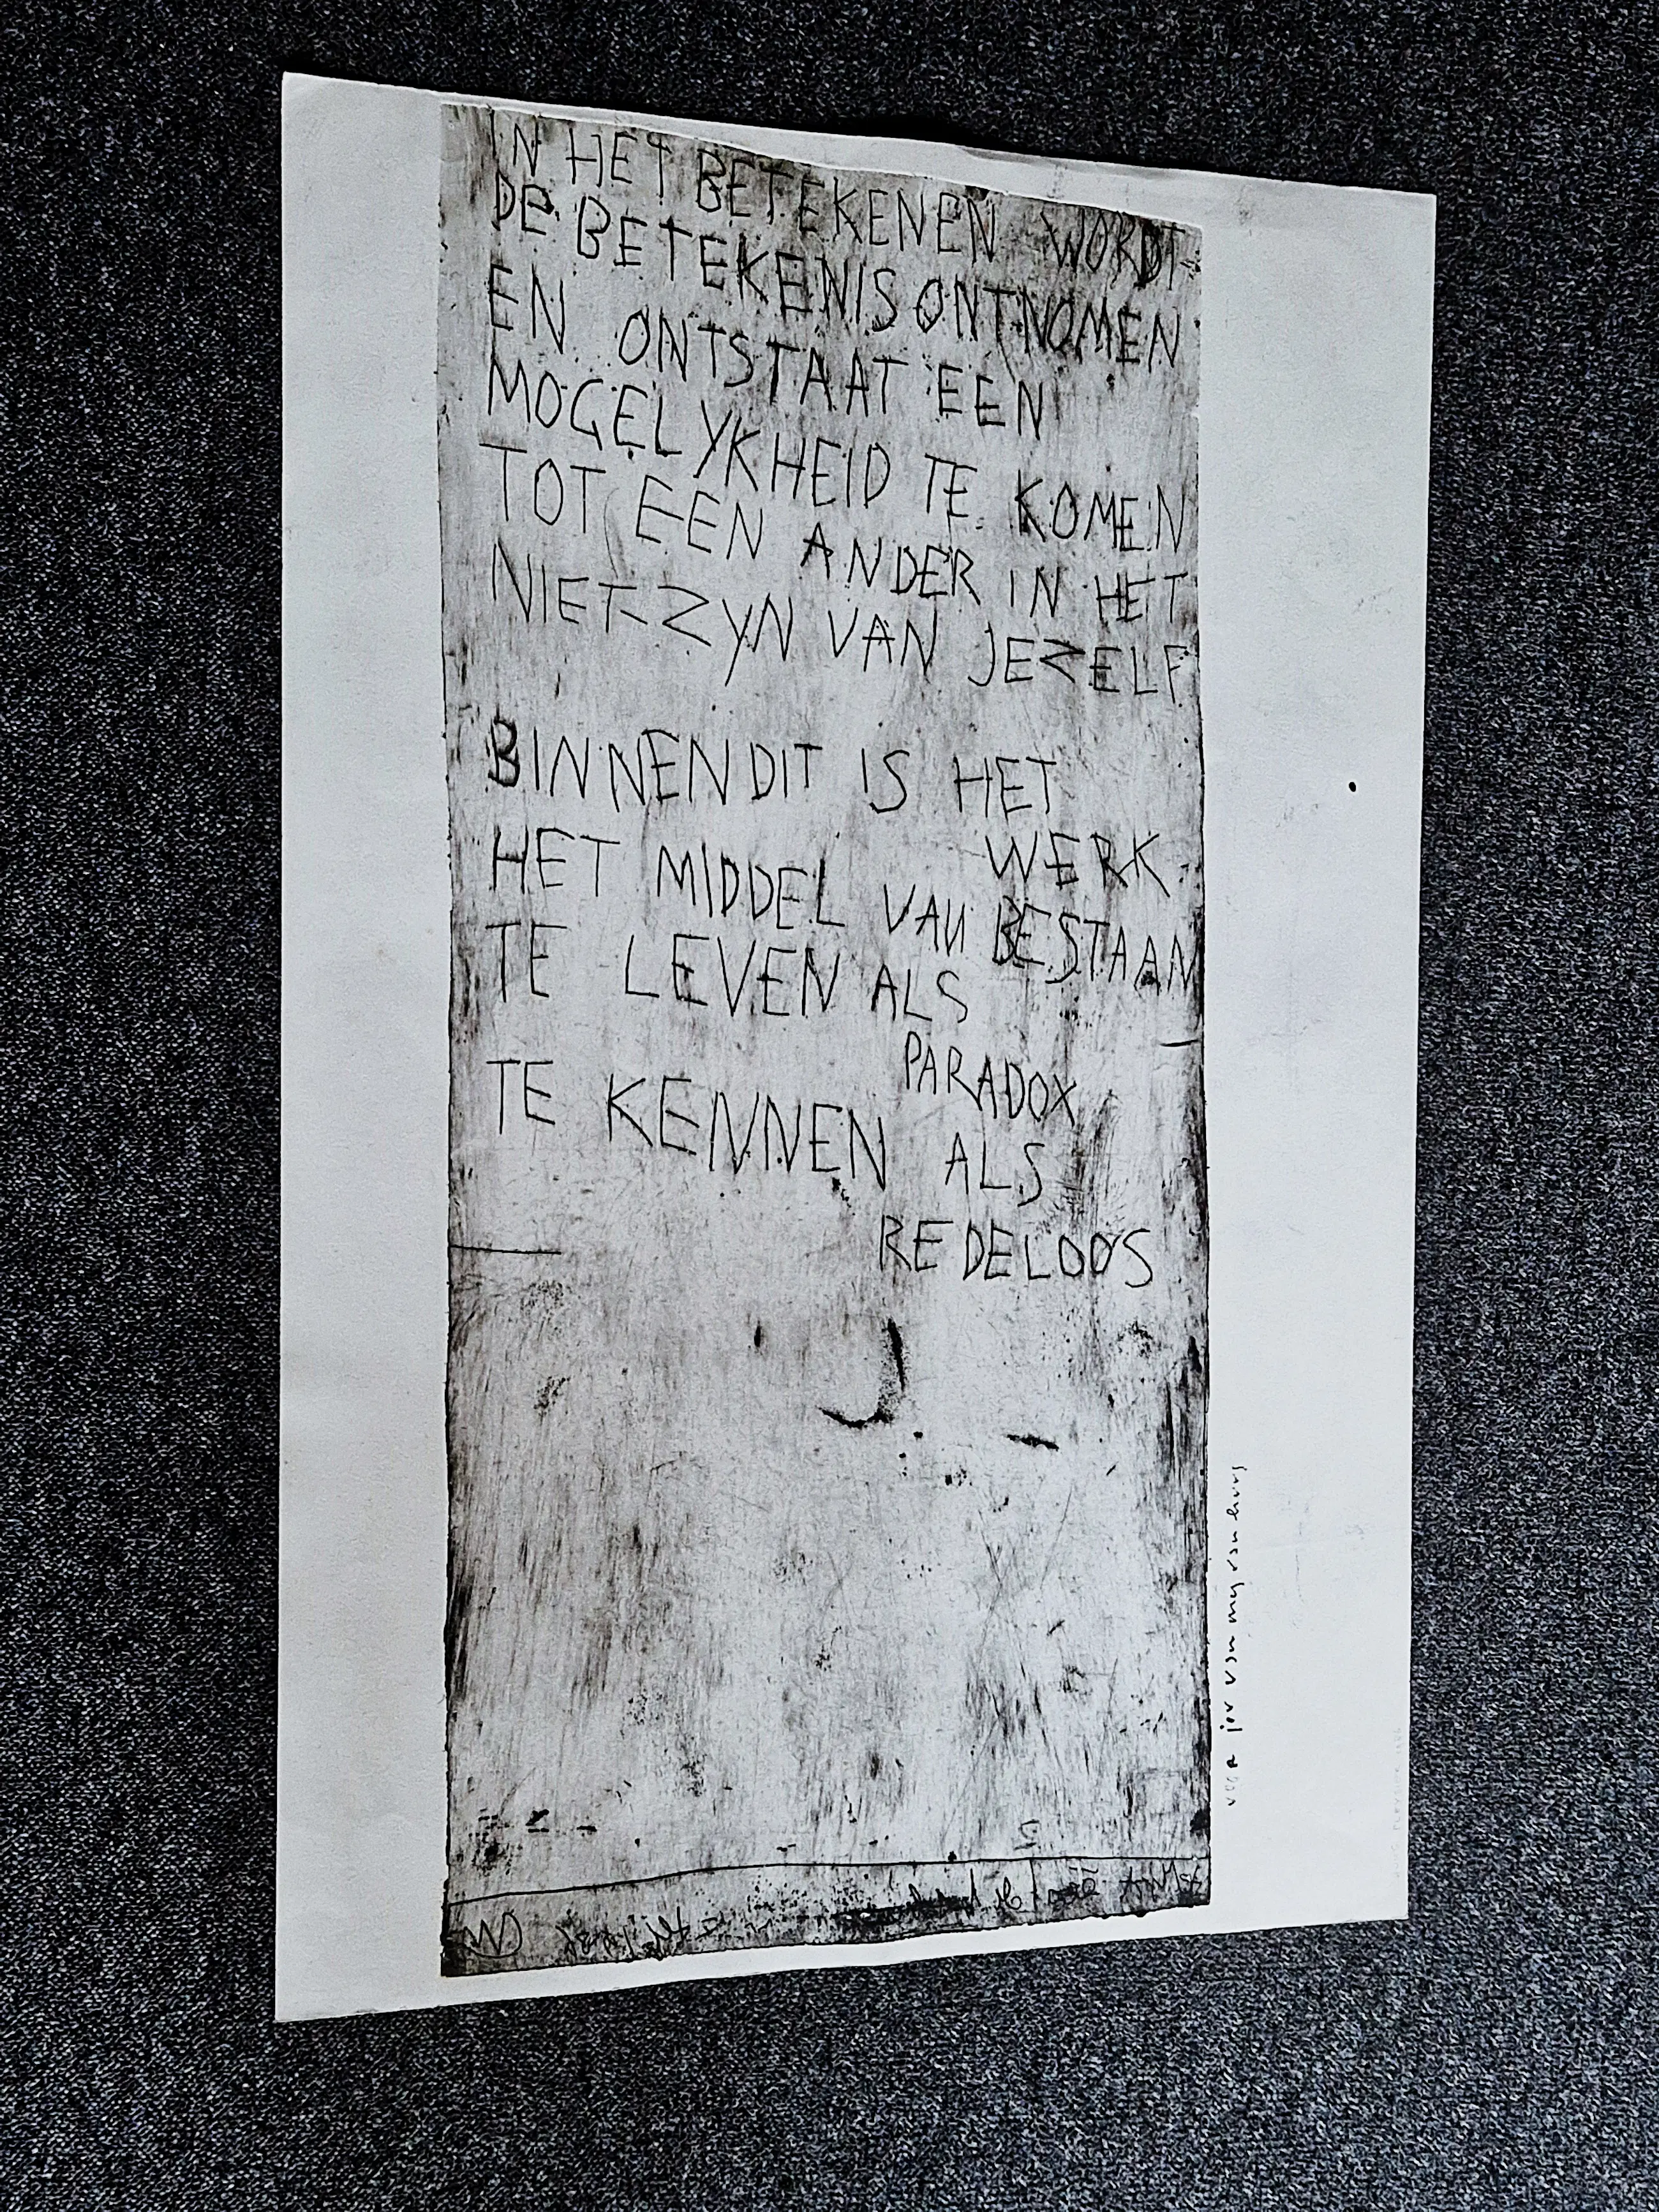 IN HET BETEKENEN WORDT
DE BETEKENIS ONTNOMEN
EN ONTSTAAT EEN
MOGELYKHEID TE KOMEN
TOT EEN ANDER IN HET
NIET-ZYN VAN JEZELF
BINNEN DIT IS HET
WERK
HET MIDDEL VAN BESTAAN
TE LEVEN ALS
PARADOX
TE KENNEN ALS
REDELOOS